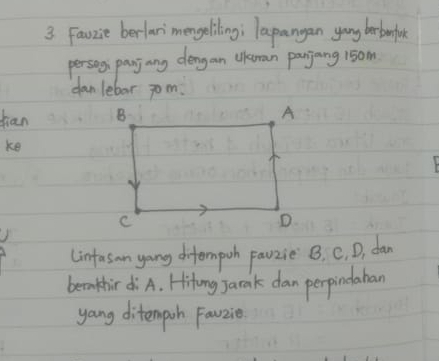 3. Fauzie berlari mengelilingi lapangan yang berbentuk
persegi panjang dengan ukuran panjang 150m
dan lebar 70 m.
dian
ke
B
A
C
D
Lintasan yang ditempuh Fauzie B, C, D, dan
berakhir di A. Hitung jarak dan perpindahan
yang ditempuh Fauzie.